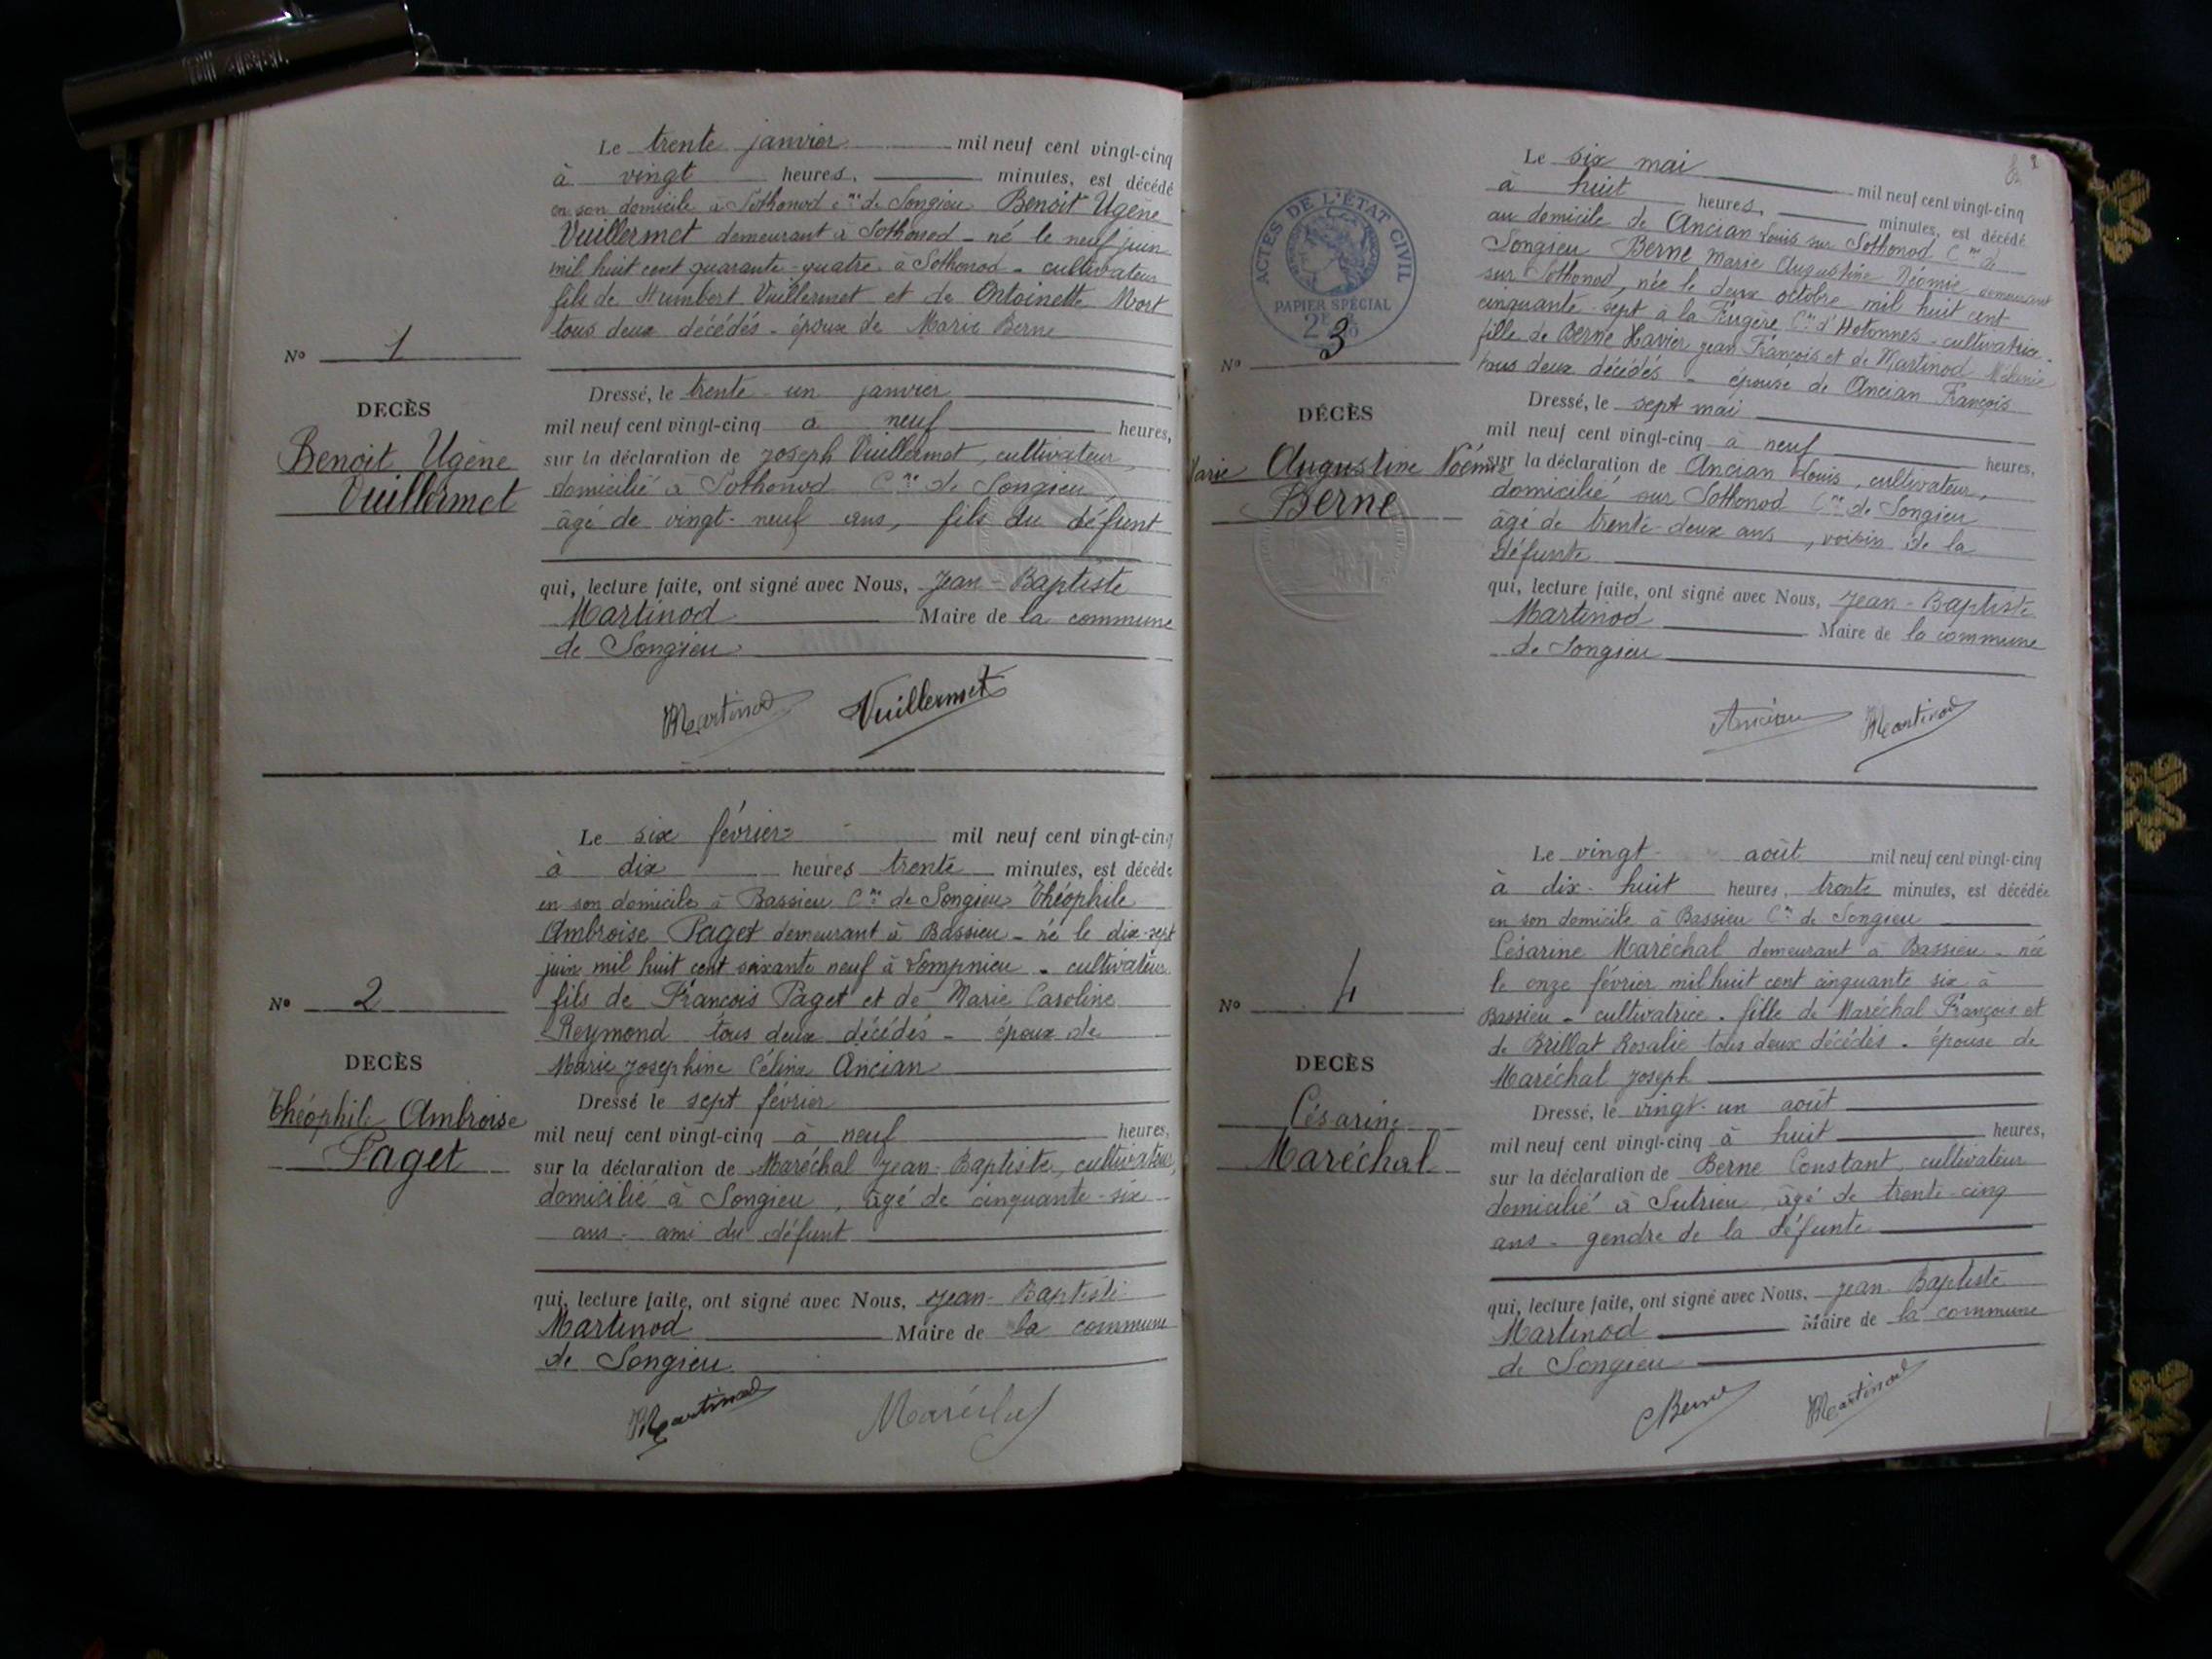 Le trente janvier mil neuf cent vingt-cinq
à vingt heures, minutes, est décédé
en son domicile à Sothonod cne de Songieu Benoit Ugène
Vuillermet demeurant à Sothonod - né le neuf juin
mil huit cent quarante-quatre à Sothonod - cultivateur
fils de Humbert Vuillermet et de Antoinette Mort
tous deux décédés - époux de Marie Berne
No 1
DECÈS
Benoit Ugène
Vuillermet
Dressé, le trente-un janvier
mil neuf cent vingt-cinq à neuf heures,
sur la déclaration de Joseph Vuillermet, cultivateur,
domicilié à Sothonod Cne de Songieu,
âgé de vingt-neuf ans, fils du défunt
qui, lecture faite, ont signé avec Nous, Jean-Baptiste
Martinod Maire de la commune
de Songieu
Martinod Vuillermet
Le six février mil neuf cent vingt-cinq
à dix heures trente minutes, est décédé
en son domicile à Bassieu Cne de Songieu Théophile
Ambroise Paget demeurant à Bassieu - né le dix-sept
juin mil huit cent soixante neuf à Lompnieu - cultivateur
fils de François Paget et de Marie Caroline
Reymond tous deux décédés - époux de
Marie Josephine Célina Ancian
No 2
DECÈS
Théophile Ambroise
Paget
Dressé le sept février
mil neuf cent vingt-cinq à neuf heures,
sur la déclaration de Maréchal Jean-Baptiste, cultivateur,
domicilié à Songieu, âgé de cinquante-six
ans - ami du défunt
qui, lecture faite, ont signé avec Nous, Jean-Baptiste
Martinod Maire de la commune
de Songieu
Martinod Maréchal
ACTES DE L'ÉTAT CIVIL
PAPIER SPÉCIAL
Le six mai mil neuf cent vingt-cinq
à huit heures, minutes, est décédé
au domicile de Ancian Louis sur Sothonod Cne de
Songieu Berne Marie Augustine Noémie demeurant
sur Sothonod, née le deux octobre mil huit cent
cinquante-sept à la Cne d'Hotonnes - cultivatrice -
fille de Berne Xavier Jean François et de Martinod
tous deux décédés - épouse de Ancian François
No 3
DÉCÈS
Marie Augustine Noémie
Berne
Dressé, le sept mai
mil neuf cent vingt-cinq à neuf heures,
sur la déclaration de Ancian Louis, cultivateur,
domicilié sur Sothonod Cne de Songieu
âgé de trente-deux ans, voisin de la
défunte
qui, lecture faite, ont signé avec Nous, Jean-Baptiste
Martinod Maire de la commune
de Songieu
Ancian Martinod
Le vingt août mil neuf cent vingt-cinq
à dix-huit heures, trente minutes, est décédée
en son domicile à Bassieu Cne de Songieu
Césarine Maréchal demeurant à Bassieu - née
le onze février mil huit cent cinquante six à
Bassieu - cultivatrice - fille de Maréchal François et
de Brillat Rosalie tous deux décédés - épouse de
Maréchal Joseph
No 4
DECÈS
Césarine
Maréchal
Dressé, le vingt-un août
mil neuf cent vingt-cinq à huit heures,
sur la déclaration de Berne Constant, cultivateur
domicilié à Sutrieu, âgé de trente-cinq
ans - gendre de la défunte
qui, lecture faite, ont signé avec Nous, Jean-Baptiste
Martinod Maire de la commune
de Songieu
Berne Martinod